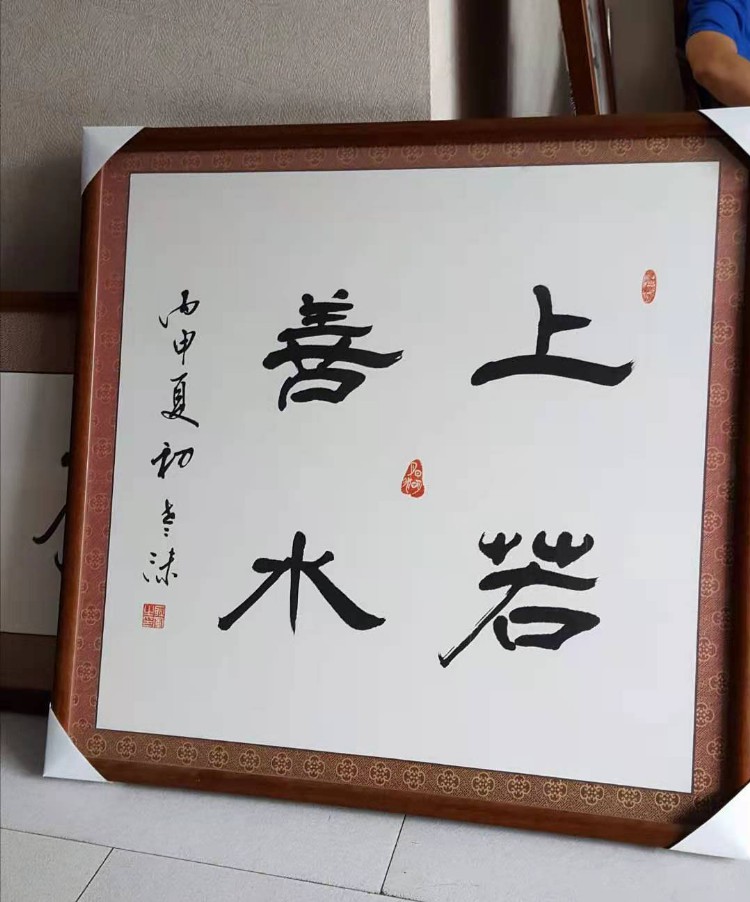 上善
若水
丙申夏初